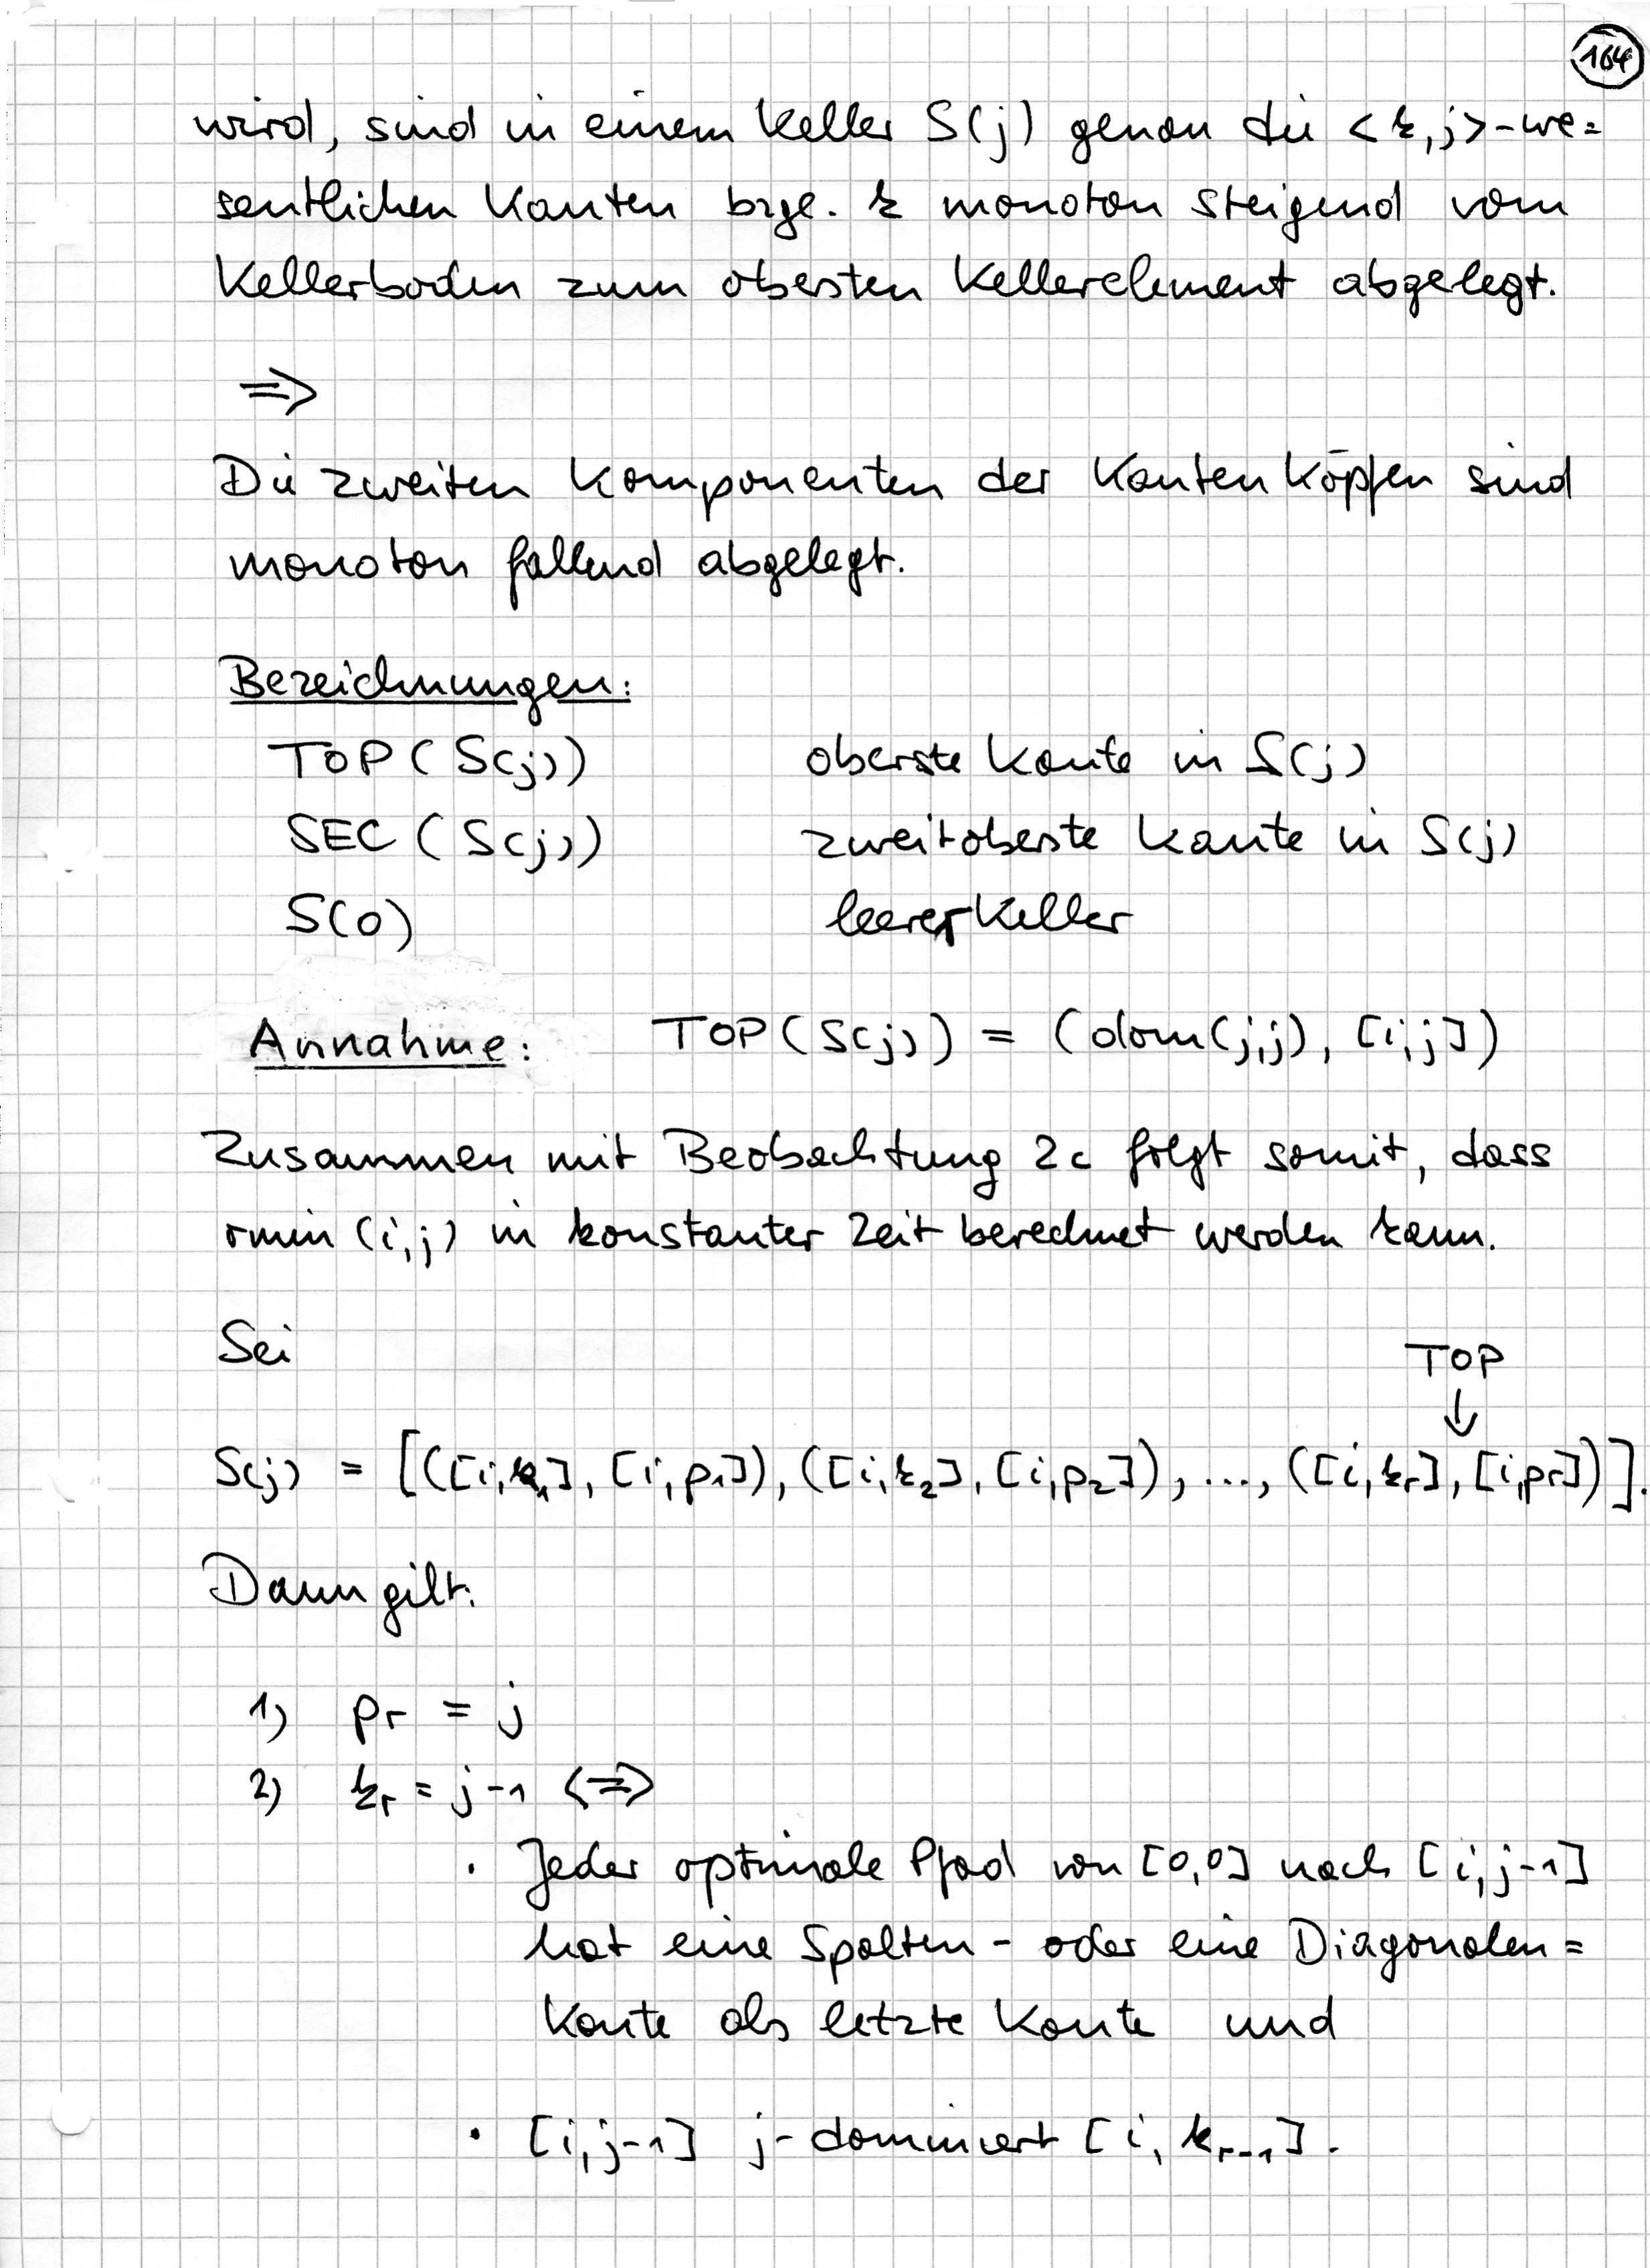 164
wird, sind in einem Keller S(j) genau die <k,j>-we=
sentlichen Kanten bzgl. k monoton steigend vom
Kellerboden zum obersten Kellerelement abgelegt.
⇒
Die zweiten Komponenten der Kantenköpfen sind
monoton fallend abgelegt.
Bezeichnungen:
TOP(S(j)) oberste Kante in S(j)
SEC(S(j)) zweitoberste Kante in S(j)
S(0) leerer Keller
Annahme: TOP(S(j)) = (dom(j,j), [i,j])
Zusammen mit Beobachtung 2c folgt somit, dass
rmin(i,j) in konstanter Zeit berechnet werden kann.
Sei
TOP
↓
S(j) = [([i,k₁], [i,p₁]), ([i,k₂], [i,p₂]), ..., ([i,kᵣ], [i,pᵣ])].
Dann gilt:
1) pᵣ = j
2) kᵣ = j-1 <=>
· Jeder optimale Pfad von [0,0] nach [i,j-1]
hat eine Spalten- oder eine Diagonalen=
kante als letzte Kante und
· [i,j-1] j-dominiert [i,kᵣ₋₁].